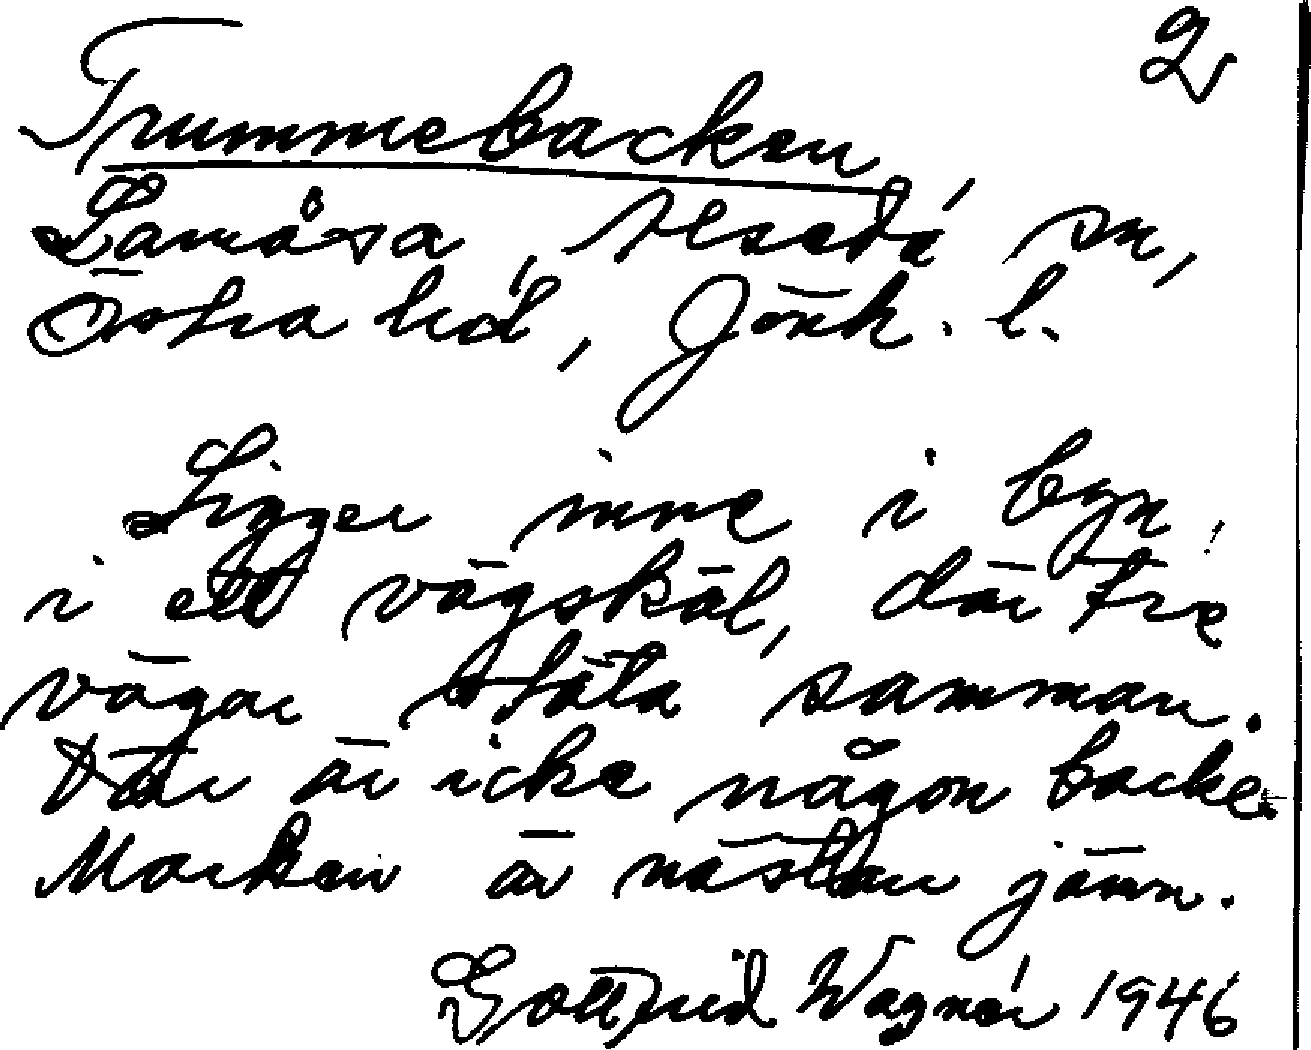 2
Trummebacken
Lamåsa, Alsedá sn,
Östra hd, Jönk. l.
Ligger inne i byn
i ett vägskäl, där tre
vägar stöta samman.
Där är icke någon backe.
Marken är nästan jämn.
Gottfrid Wagnér 1946